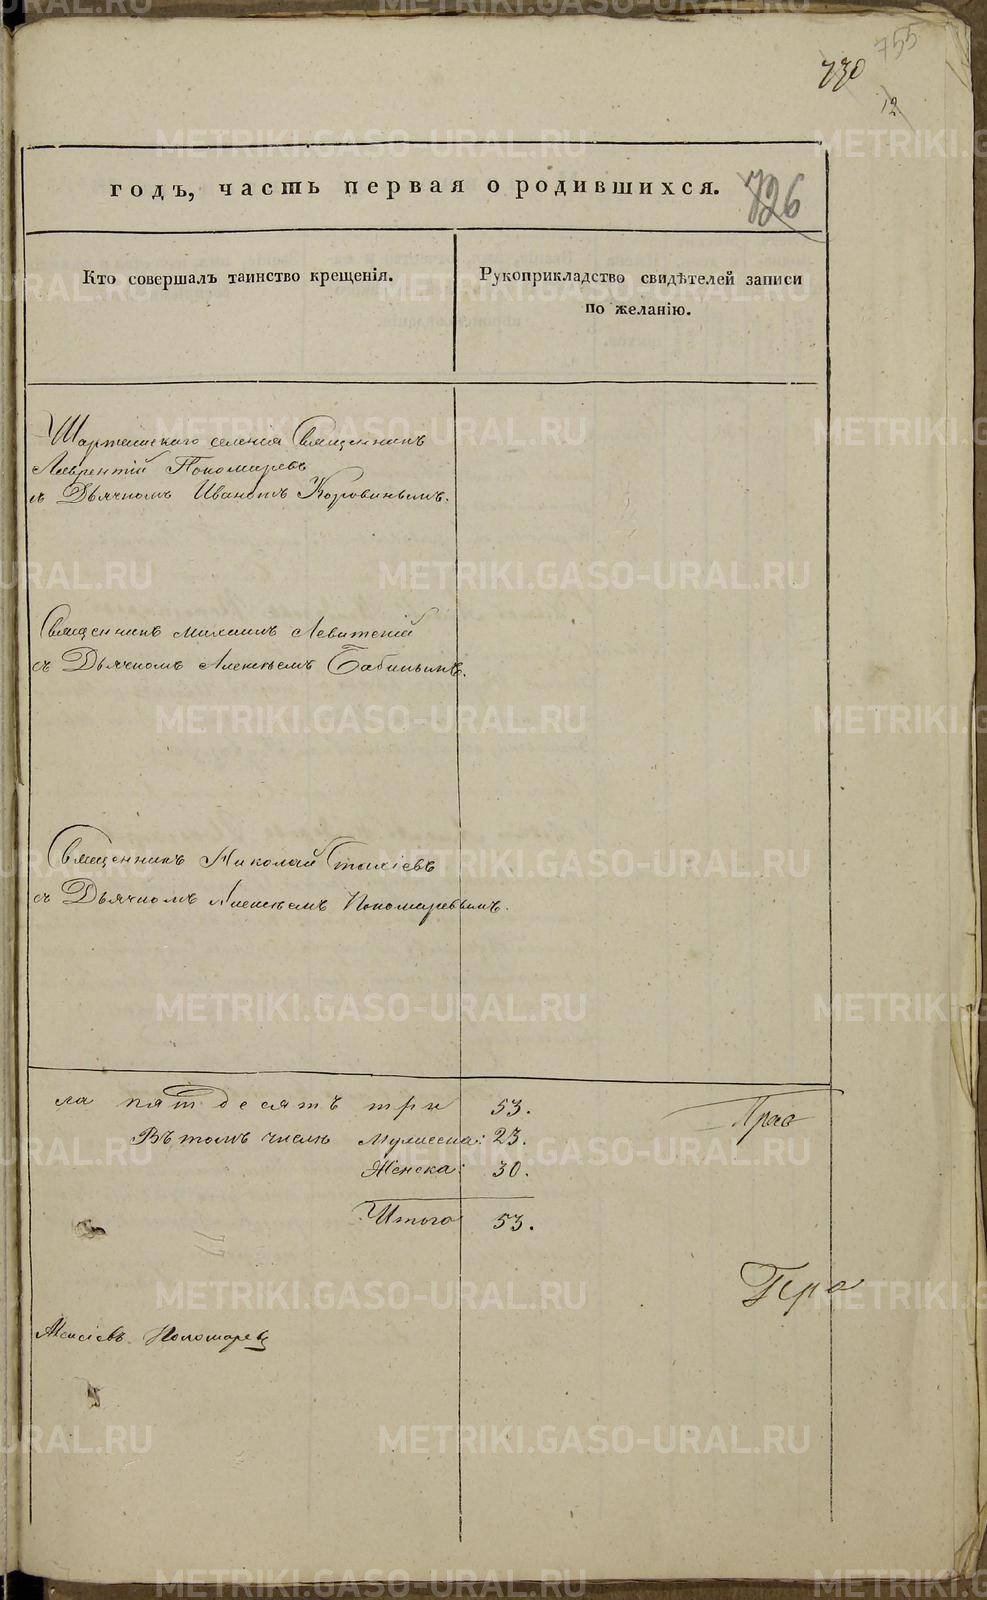 755
730
12
годъ, часть первая о родившихся.
726
Кто совершалъ таинство крещенія.
Рукоприкладство свидѣтелей записи
по желанію.
Шарташскаго селенія Священникъ
Лаврентій Пономаревъ
съ Дьячкомъ Иваномъ Коровинымъ.
Священникъ Михаилъ Левитскій
съ Дьячкомъ Алексѣемъ Бабинымъ.
Священникъ Николай
съ Дьячкомъ Алексѣемъ Пономаревымъ.
ла пятдесятъ три 53.
Въ томъ числѣ Мужеска: 23.
Женска: 30.
Итого 53.
Пономаревъ
METRIKI.GASO-URAL.RU